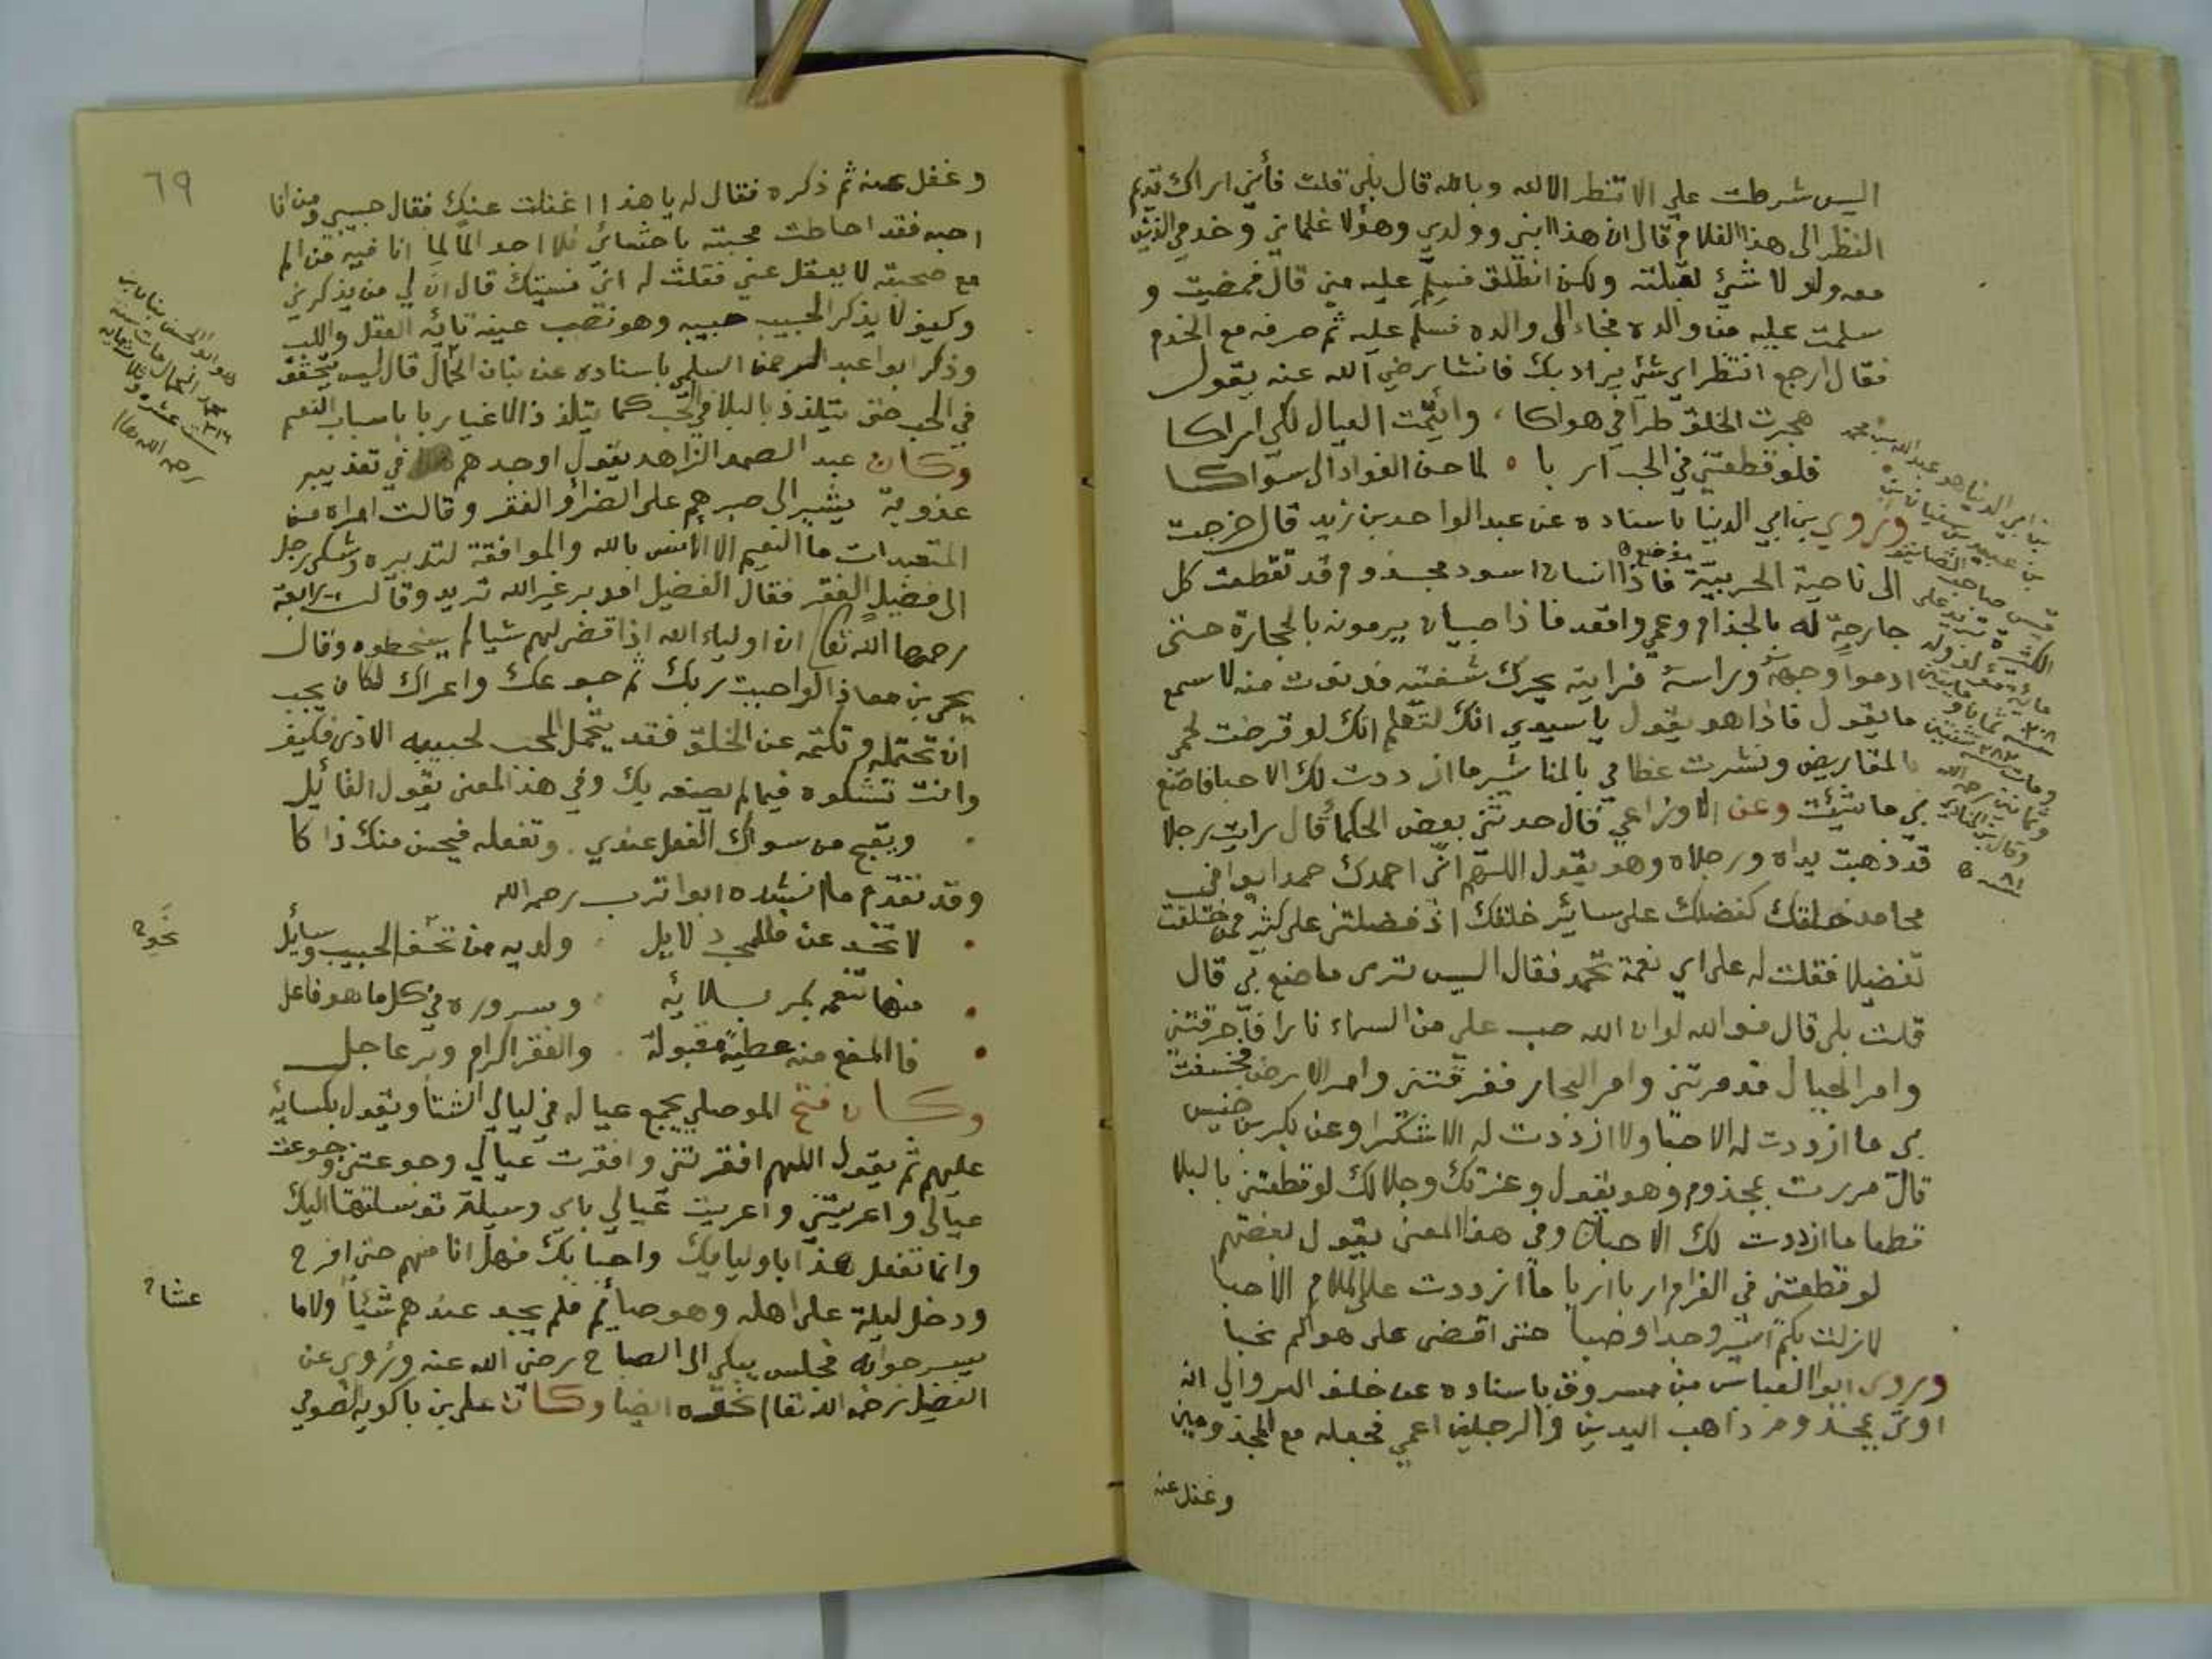 اليس شرطت علي الا تنظر الا لله وبالله قال بلى قلت فأني اراك تديم
النظر الى هذا الغلام قال ان هذا ابني وولدي وهؤلا غلماني وخدمي الذين
معه ولولا شئ لقبلته ولكن انطلق فسلم عليه مني قال فمضيت و
سلمت عليه من والده فجاء الى والده فسلم عليه ثم صرفه مع الخدم
فقال ارجع انتظر اي شئ يراد بك فانشا رضي الله عنه يقول
هجرت الخلق طرا في هواكا ، وايتمت العيال لكي اراكا
فلو قطعتني في الحب اربا ٥ لما حن الفواد الى سواكا
وروي بن ابي الدنيا باسناده عن عبد الواحد بن زيد قال خرجت
الى ناحية الحربية فاذا انسان اسود مجذوم قد تقطعت كل
جارحة له بالجذام وعمي واقعد فاذا صبيان يرمونه بالحجارة حتى
ادموا وجهه وراسه فرايته يحرك شفتيه فدنوت منه لاسمع
ما يقول فاذا هو يقول يا سيدي انك لتعلم انك لو قرضت لحمي
بالمقاريض ونشرت عظامي بالمناشير ما ازددت لك الا حبا فاصنع
بي ما شئت وعن الاوزاعي قال حدثني بعض الحكما قال رايت رجلا
قد ذهبت يداه ورجلاه وهو يقول اللهم اني احمدك حمدا يوافي
محامد خلقك كفضلك على سائر خلقك اذ فضلتني على كثير ممن خلقت
تفضيلا فقلت له على اي نعمة تحمد فقال اليس ترى ما صنع بي قال
قلت بلى قال فوالله لو ان الله صب علي من السماء نارا فأحرقتني
وامر الجبال فدمرتني وامر البحار فغرقتني وامر الارض فخسفت
بي ما ازددت له الا حبا ولا ازددت له الا شكرا وعن بكر بن خنيس
قال مررت بمجذوم وهو يقول وعزتك وجلالك لو قطعتني بالبلا
قطعا ما ازددت لك الا حبا وفي هذا المعنى يقول بعضهم
لو قطعتني في الغرام اربا اربا ما ازددت على الملام الا حبا
لا زلت بكم اسير وجدا وصبا حتى اقضى على هواكم نحبا
وروى ابو العباس بن مسروق باسناده عن خلف البروالي انه
اوتي بمجذوم ذاهب اليدين والرجلين اعمي فجعله مع المجذومين
وغفل عنه
٦٩
وغفل عنه ثم ذكره فقال له يا هذا اغفلت عنك فقال حبيبي ومن انا
احبه فقد احاطت محبته باحشائي فلا اجد الما لما انا فيه من الم
مع محبته لا يعقل عني فقلت له اني نسيتك قال ان لي من يذكرني
وكيف لا يذكر الحبيب حبيبه وهو نصب عينه تائه العقل واللب
وذكر ابو عبد الرحمن السلمي باسناده عن بنان الحمال قال ليس يتحقق
في الحب حتى يتلذذ بالبلا في الحب كما يتلذذ الاغيار باسباب النعم
وكان عبد الصمد الزاهد يقول اوجدهم في تعذيبه
عذوبة يشير الى صبرهم على الضر والفقر وقالت امراه من
المتعبدات ما النعيم الا الأنس بالله والموافقة لتدبيره وشكى رجل
الى فضيل الفقر فقال الفضيل امدبر غير الله تريد وقالت رابعة
رحمها الله تعا ان اولياء الله اذا قضى لهم شيا لم يسخطوه وقال
يحيى بن معاذ لو احببت ربك ثم جوعك واعراك لكان يجب
ان تحتمله وتكتمه عن الخلق فقد يتحمل المحب لحبيبه الاذى فكيف
وانت تشكوه فيما لم يصنعه بك وفي هذا المعنى يقول القائل
ويقبح من سواك الفعل عندي . وتفعله فيحسن منك ذاكا
وقد تقدم ما انشده ابو تراب رحمه الله
لا تخدعن فللمحب دلايل . ولديه من تحف الحبيب وسائل
منها تنعمه بمر بلائه . وسروره في كل ما هو فاعل
فالمنع منه عطية مقبولة . والفقر اكرام وبر عاجل
وكان فتح الموصلي يجمع عياله في ليالي الشتا ويقول بكسائه
عليهم ثم يقول اللهم افقرتني وافقرت عيالي وجوعتني وجوعت
عيالي واعريتني واعريت عيالي باي وسيلة توسلتها اليك
وانما تفعل هذا باوليايك واحبابك فهل انا منهم حتى افرح
ودخل ليلة على اهله وهو صائم فلم يجد عندهم شئيا ولا ما
يسرحوا به فجلس يبكي الى الصباح رضي الله عنه وروي عن
الفضيل رضه الله تعا نحوه ايضا وكان علي بن باكويه الصوفي
نحو
عشا